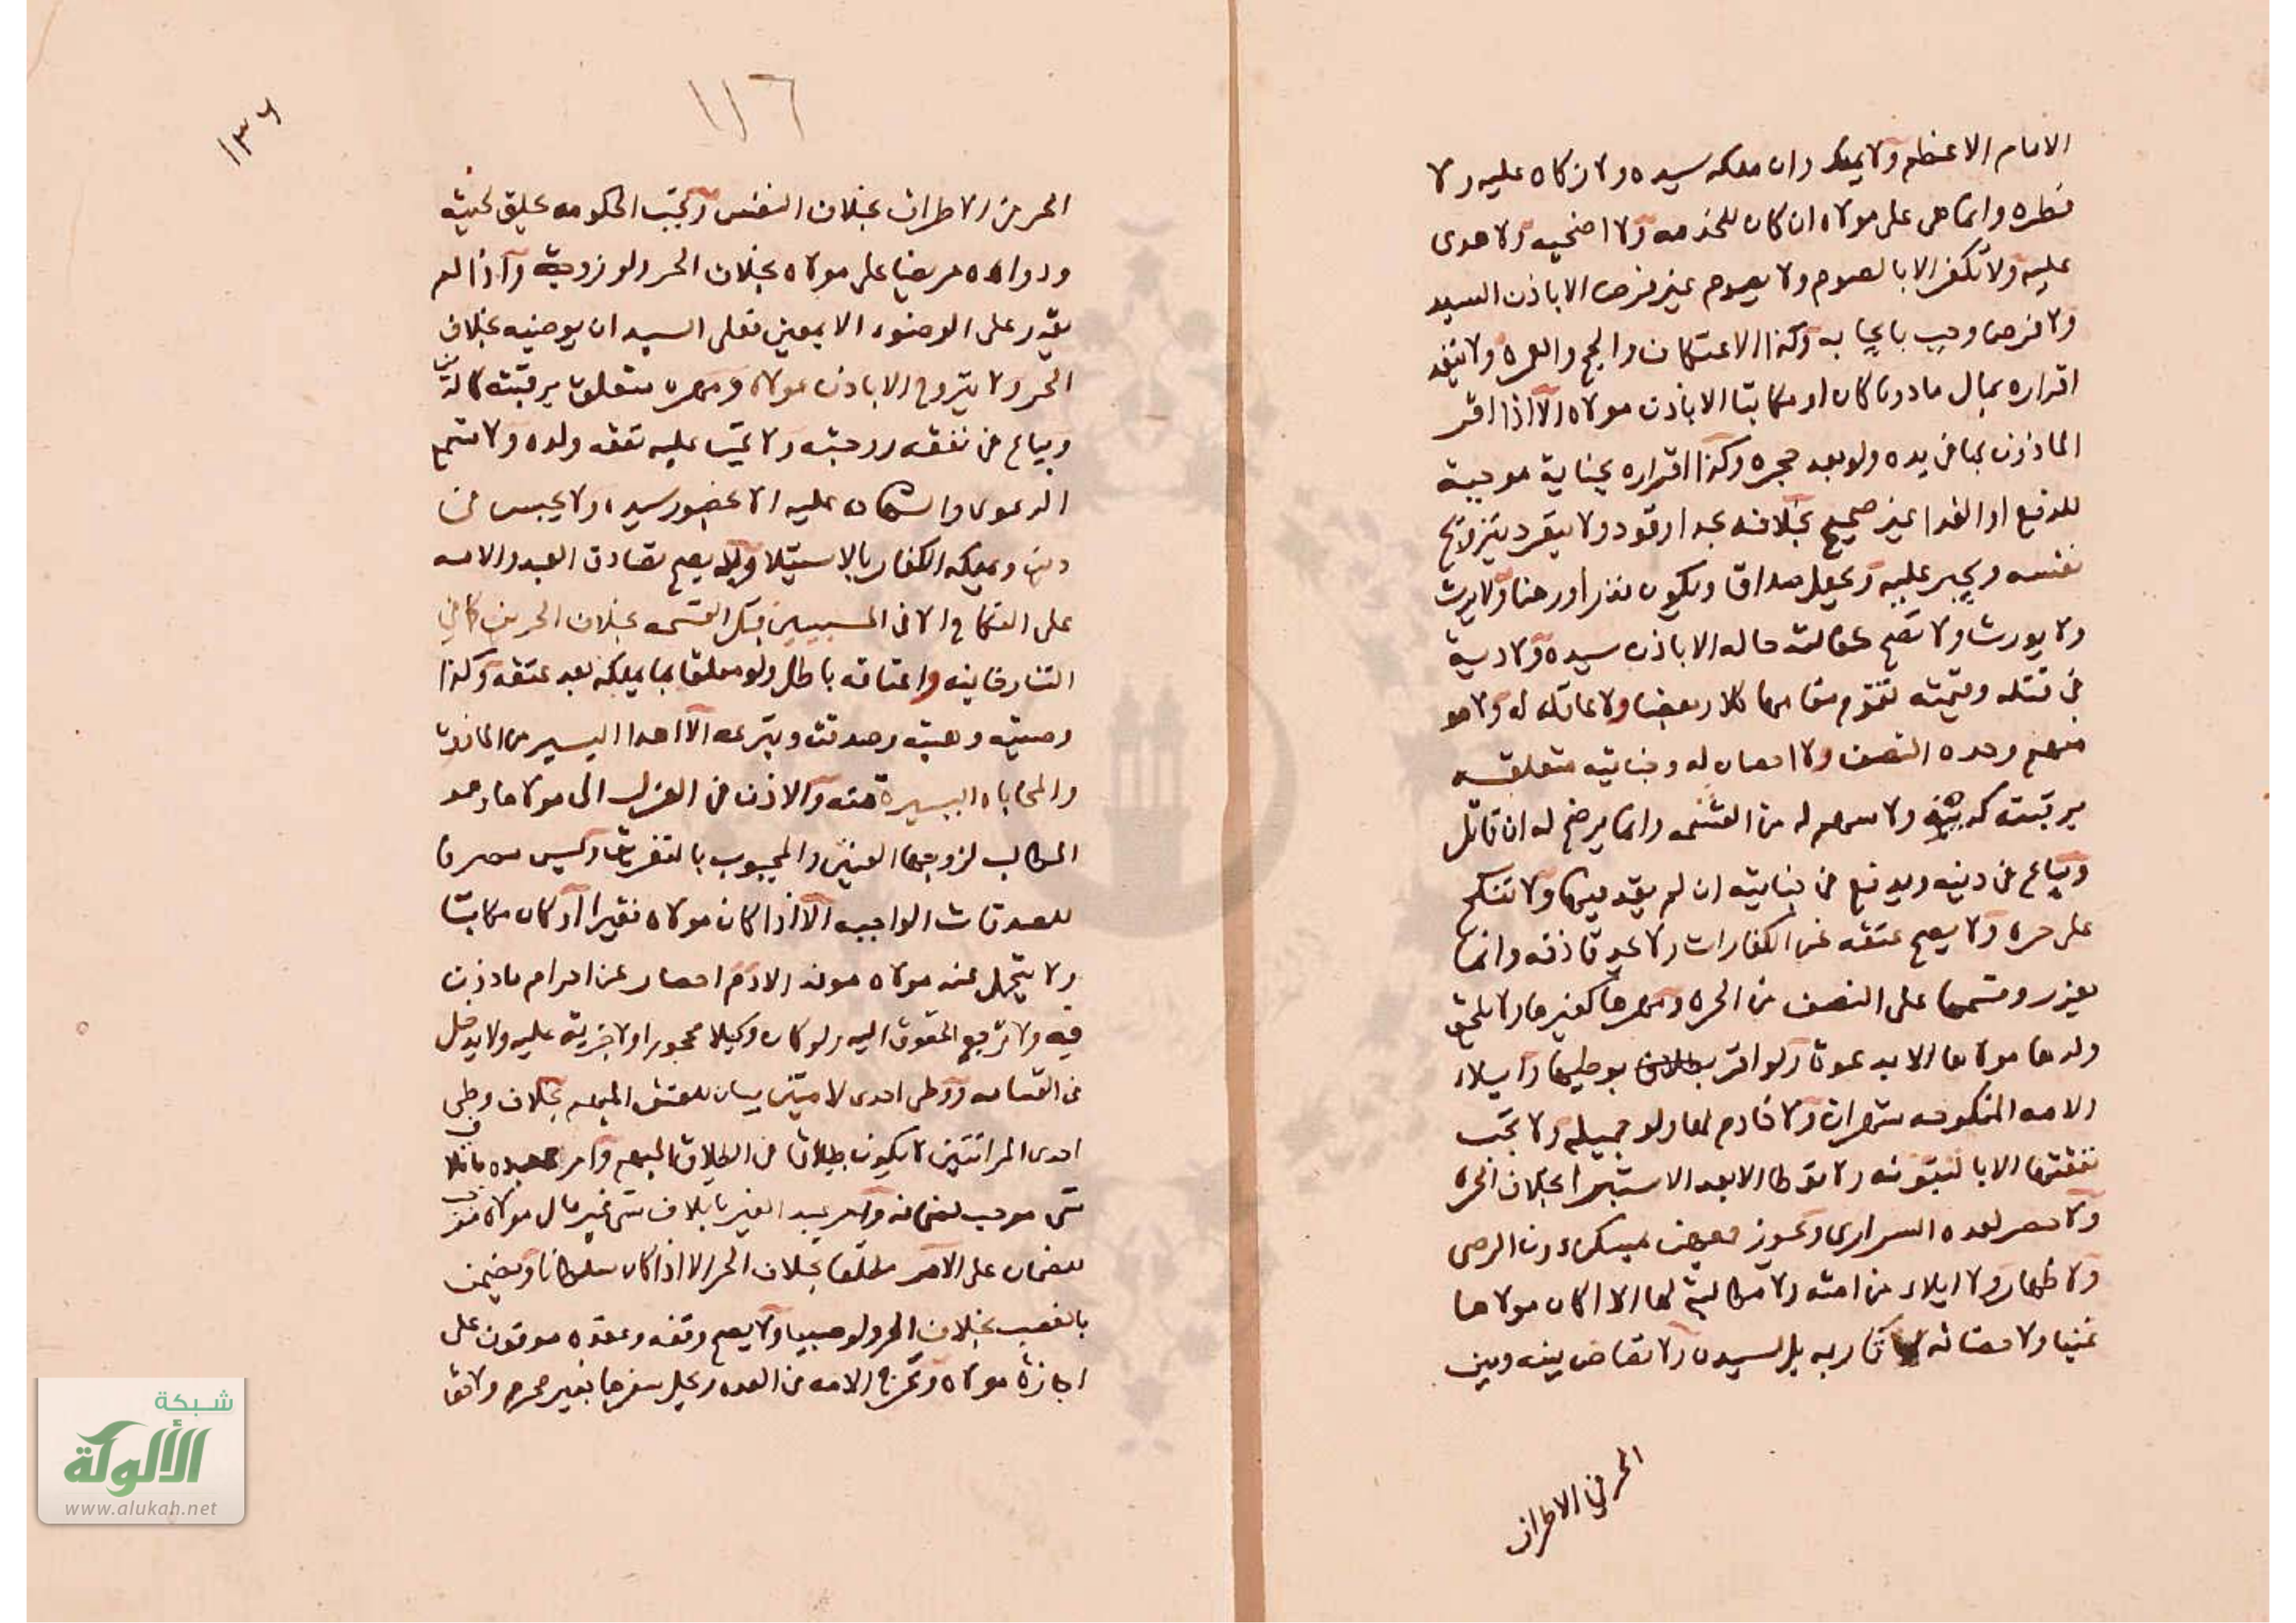 الامام الاعظم ولا يملك وان ملكه سيده ولا زكاه عليه ولا
فطره وانما هى على مولاه ان كان للخدمه ولا اضحيه ولا هدى
عليه ولا تكفر الا بالصوم ولا يصوم غير فرض الا باذن السيد
ولا فرضا وجب بايجابه وكذا الاعتكاف والحج والعمره ولا ينفذ
اقراره بمال ماذونا كان او مكاتبا الا باذن مولاه الا اذا اقر
الماذون بما فى يده ولو بعد حجره وكذا اقراره بجناية موجبة
للدفع او الفدا غير صحيح بخلافه بحد او قود ولا ينفرد بتزويج
نفسه ويجبر عليه ويجعل صداقا ويكون نذرا ورهنا ولا يرث
ولا يورث ولا تصح كفالته حاله الا باذن سيده ولا دية
فى قتله وقيمته تقوم مقامها كلا وبعضا ولا عاقله له ولا هو
منهم وحده النصف ولا احصان له وجنايته متعلقه
برقبته كدينه ولا سهم له من الغنيمه وانما يرضخ له ان قاتل
ويباع فى دينه ويدفع فى جنايته ان لم يفد سيده ولا تنكح
على حره ولا يصح عتقه عن الكفارات ولا يحد قاذفه وانما
يعزر وقسمها على النصف من الحره ومهرها كغيرها ولا يلحق
ولدها مولاها الا بدعوته ولو اقر بوطيها وايلاء
الامه المنكوحه شهران ولا خادم لها ولو جميله ولا تجب
نفقتها الا بالتبوئه ولا توطا الا بعد الاستبرا بخلاف الحره
ولا حصر لعدد السرارى ويجوز جمعهن بمسكن دون الرضى
ولا ظهار ولا ايلاء من امته ولا مطالبة لها اذا كان مولاها
عنينا ولا حضانه لاقاربه بل لسيده ولا تقاص بينه وبين
الحر فى الاطراف
١٣٦
١١٦
الحر فى الاطراف بخلاف النفس وتجب الحكومه بحلق لحيته
ودواءه مريضا على مولاه بخلاف الحر ولو زوجة واذا لم
يقدر على الوضوء الا بمعين فعلى السيد ان يوضيه بخلاف
الحر ولا يتزوج الا باذن مولاه ومهره متعلق برقبته كالدين
ويباع فى نفقه زوجته ولا تجب عليه نفقه ولده ولا تسمع
الدعوى والشهاده عليه الا بحضور سيده ولا يحبس فى
دين ويملكه الكفار بالاستيلا ولا يصح تصادق العبد والامه
على النكاح الا فى المسبيين قبل القسمه بخلاف الحرين كما فى
التتارخانيه واعتاقه باطل ولو معلقا بما يملكه بعد عتقه وكذا
وصيته وهبته وصدقته وتبرعه الا اهدا اليسير من الماذون
والمحاباه اليسيرة منه والاذن فى العزل الى مولاها وهو
المطالب لزوجها العنين والمجبوب بالتفريق وليس مصرفا
للصدقات الواجبه الا اذا كان مولاه فقيرا او كان مكاتبا
ولا يتحمل عنه مولاه مونه الا دم احصار عن احرام ماذون
فيه ولا ترجع الحقوق اليه ولو كان وكيلا محجورا ولا جزية عليه ولا يدخل
فى القسامه ووطى احدى الامتين بيان للعتق المبهم بخلاف وطى
احدى المراتين لا يكون بيانا فى الطلاق المبهم وامر عبده باتلاف
شى موجب لضمانه وامر عبد الغير باتلاف شى غير مال مولاه موجب
للضمان على الآمر مطلقا بخلاف الحر الا اذا كان سلطانا ويضمن
بالغصب بخلاف الحر ولو صبيا ولا يصح وقفه وعقده موقوف على
اجازة مولاه وتخرج الامه فى العده ويحل سفرها بغير محرم ولا لعا
شبكة
الألوكة
www.alukah.net